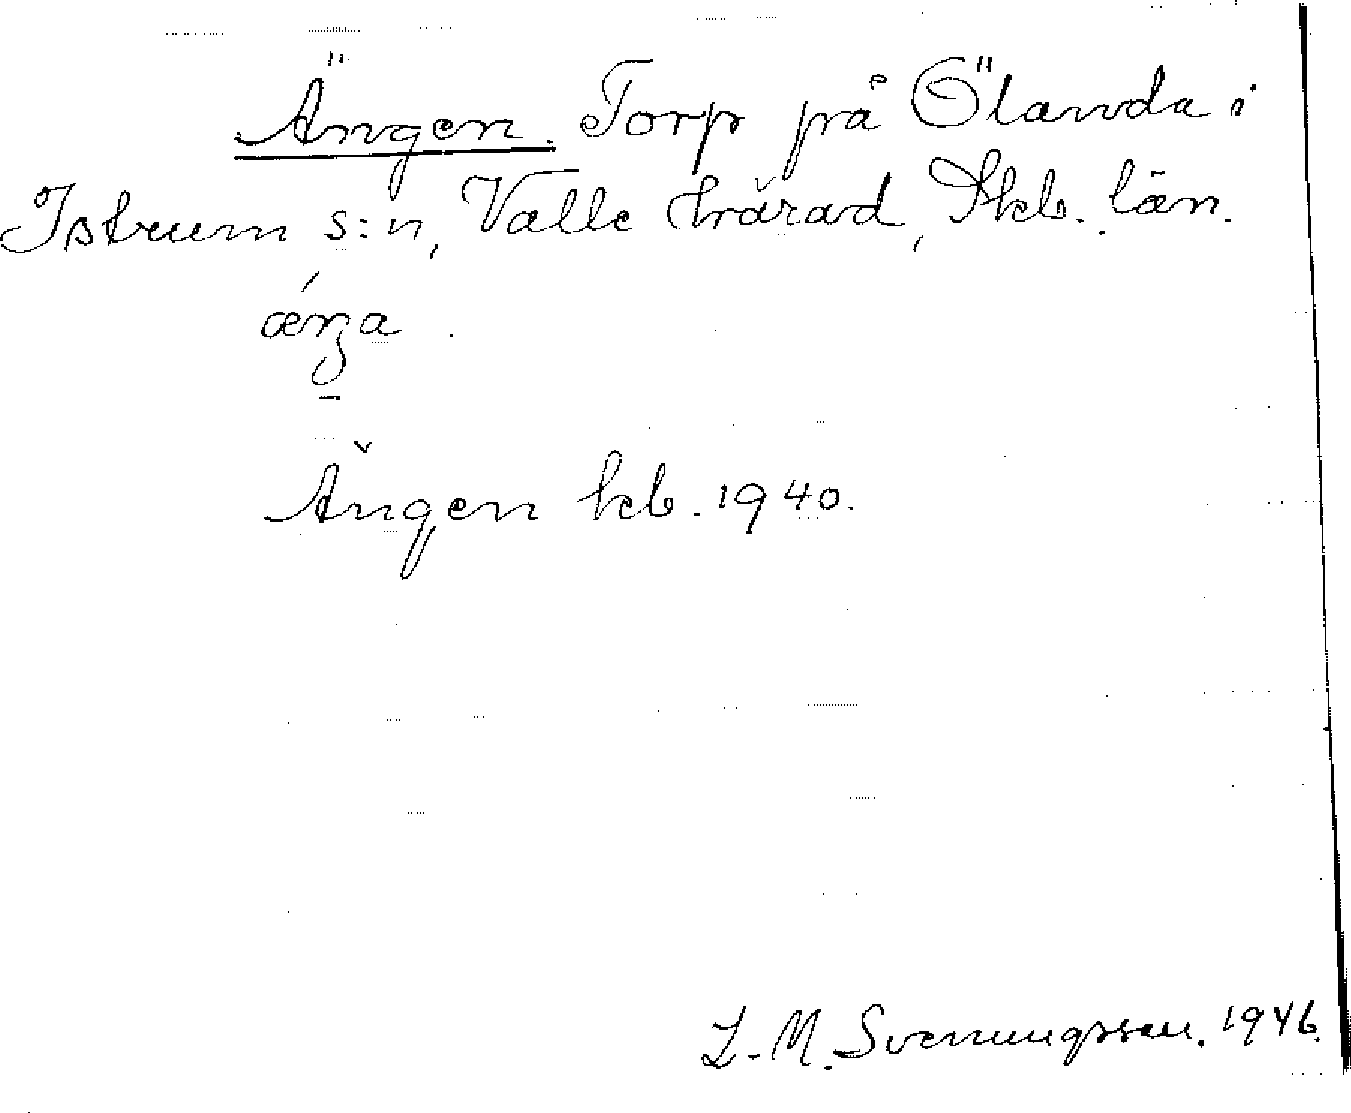 Ängen. Torp på Ölanda i
Istrum s:n, Valle härad, Skb. län.
ǽŋa.
Ängen kb. 1940.
L-M. Svenungsson. 1946.